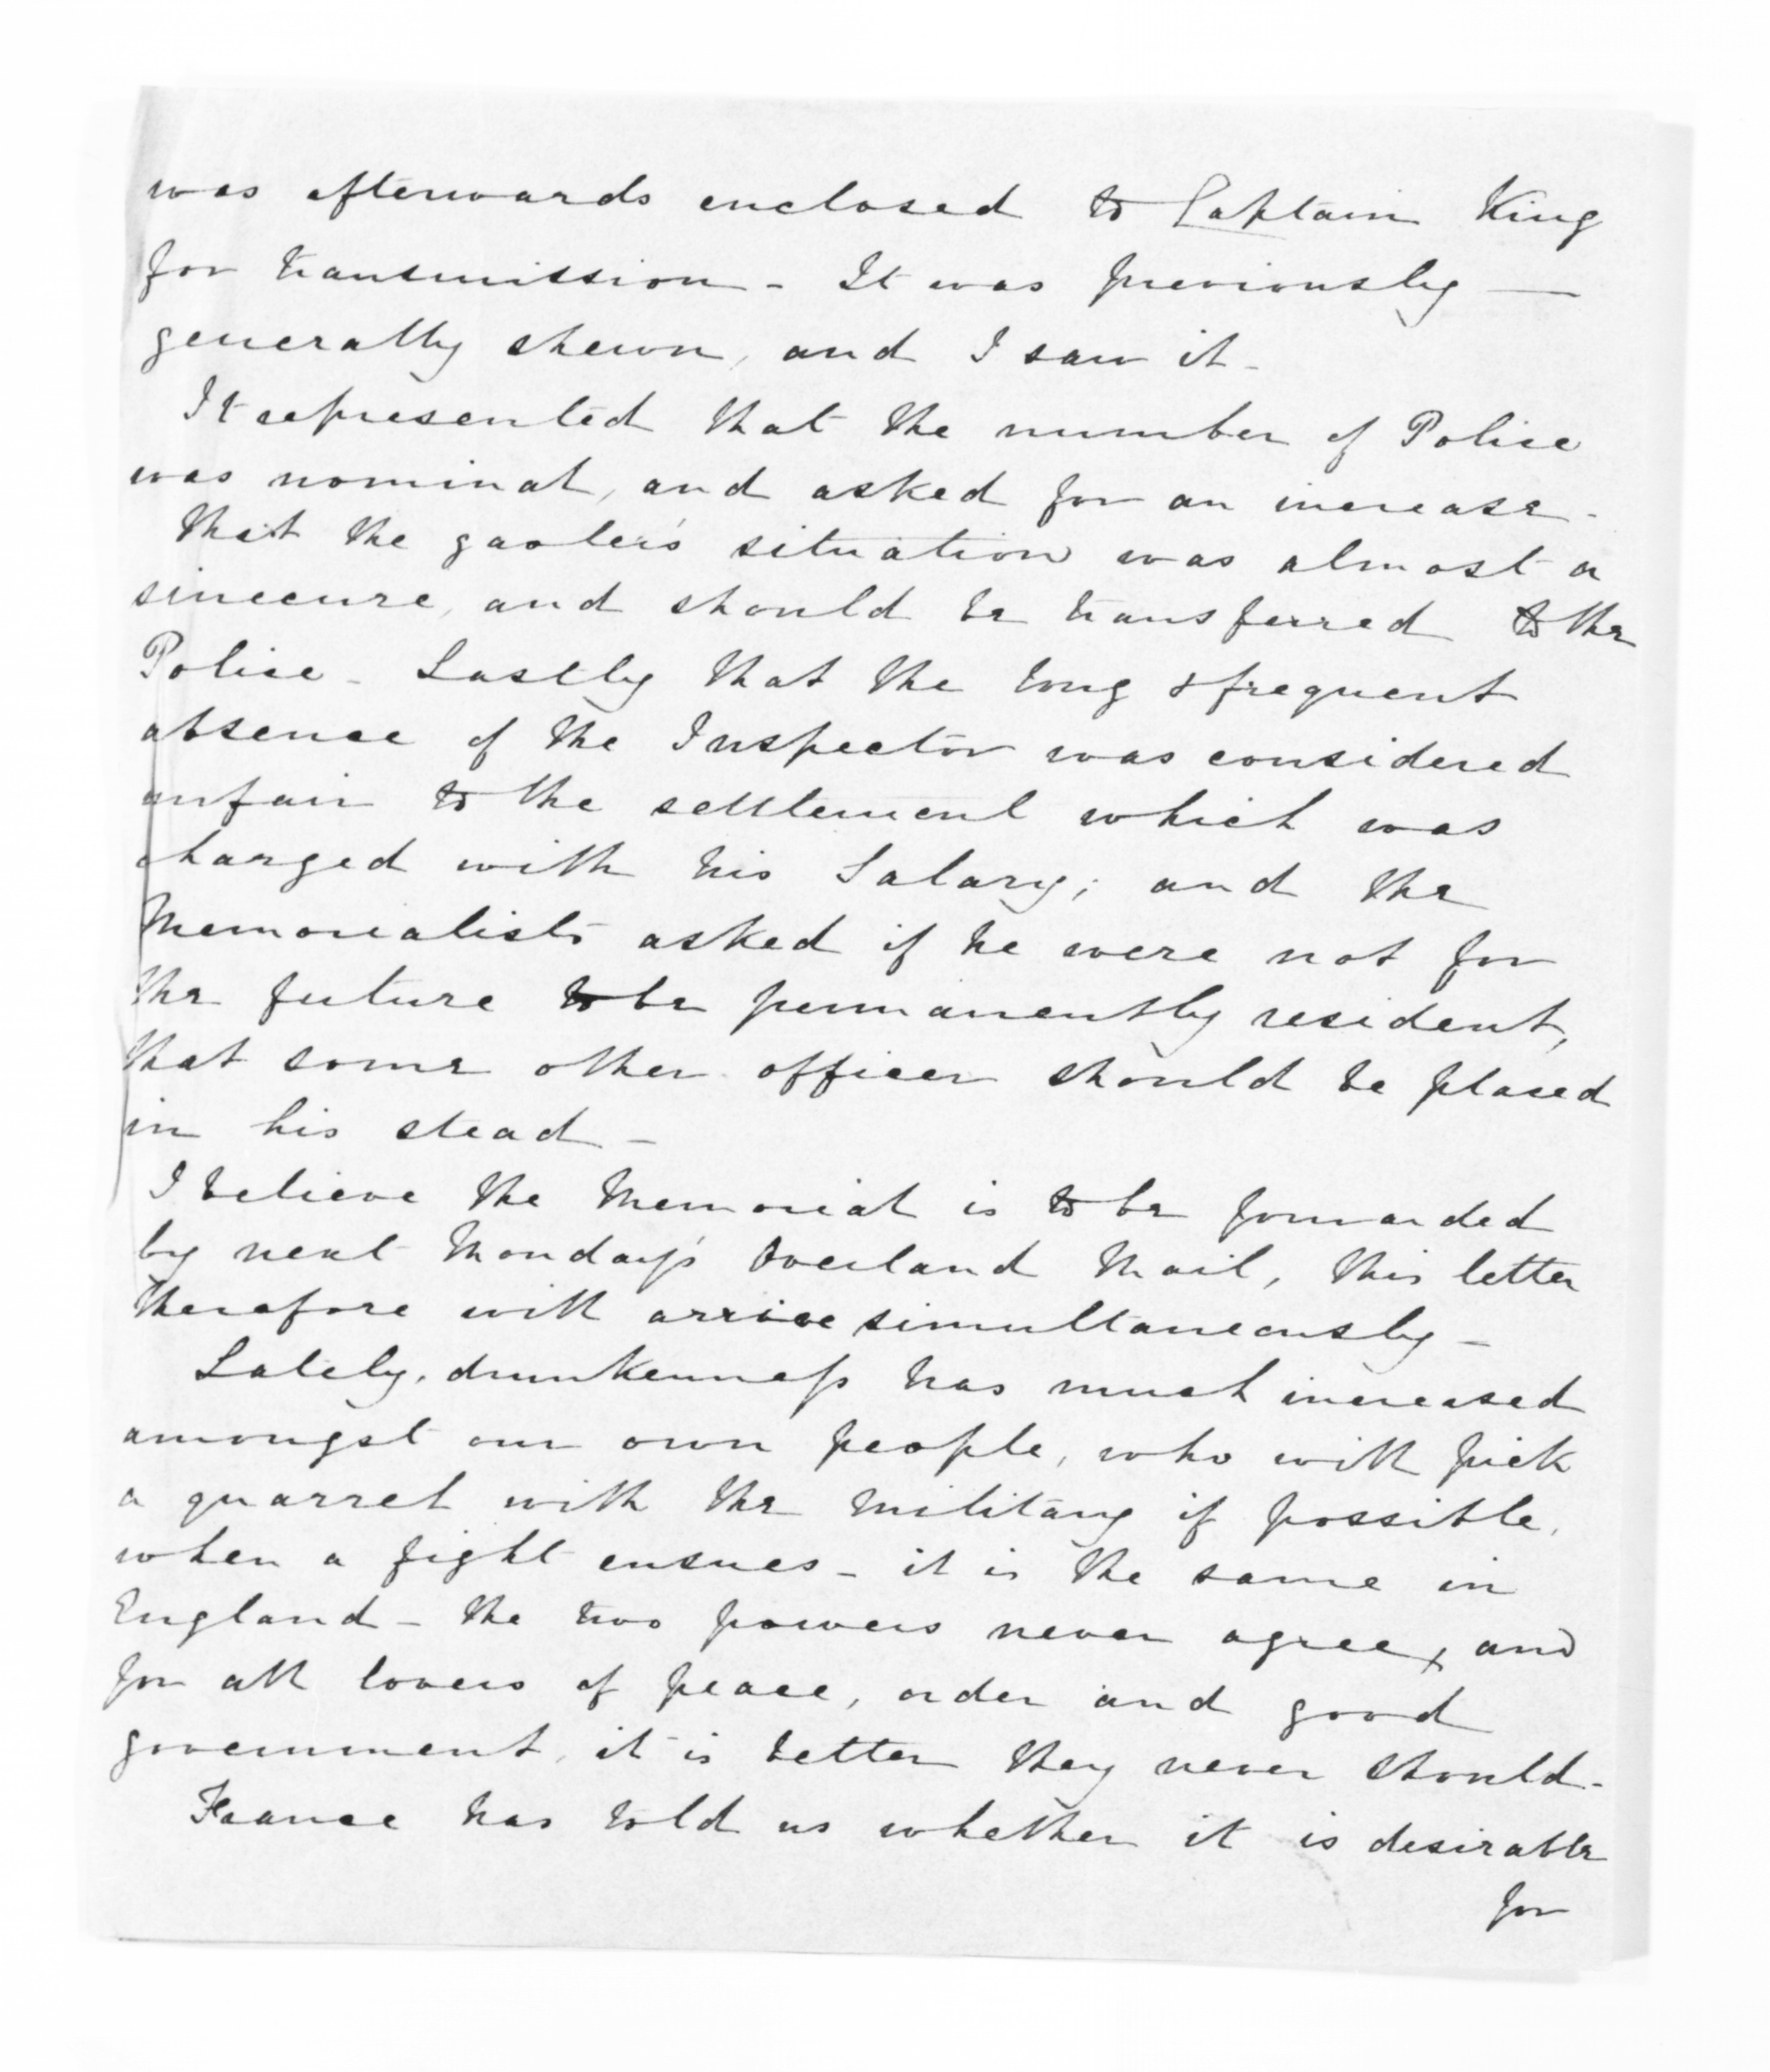 was afterwards enclosed to Captain King
for transmission - It was previously —
generally shewn, and I saw it -
It represented that the number of Police
was nominal, and asked for an increase -
That the gaoler's situation was almost a
sinecure, and should be transferred to the
Police - Lastly that the long & frequent
absence of the Inspector was considered
unfair to the settlement which was
charged with his Salary; and the
Memorialists asked if he were not for
the future to be permanently resident,
that some other officer should be placed
in his stead -
I believe the Memorial is to be forwarded
by next Monday's Overland Mail, this letter
therefore will arrive simultaneously -
Lately, drunkenness has much increased
amongst our own people, who will pick
a quarrel with the Military if possible,
when a fight ensues - it is the same in
England - the two powers never agree, and
for all lovers of peace, order and good
government, it is better they never should -
France has told us whether it is desirable
for